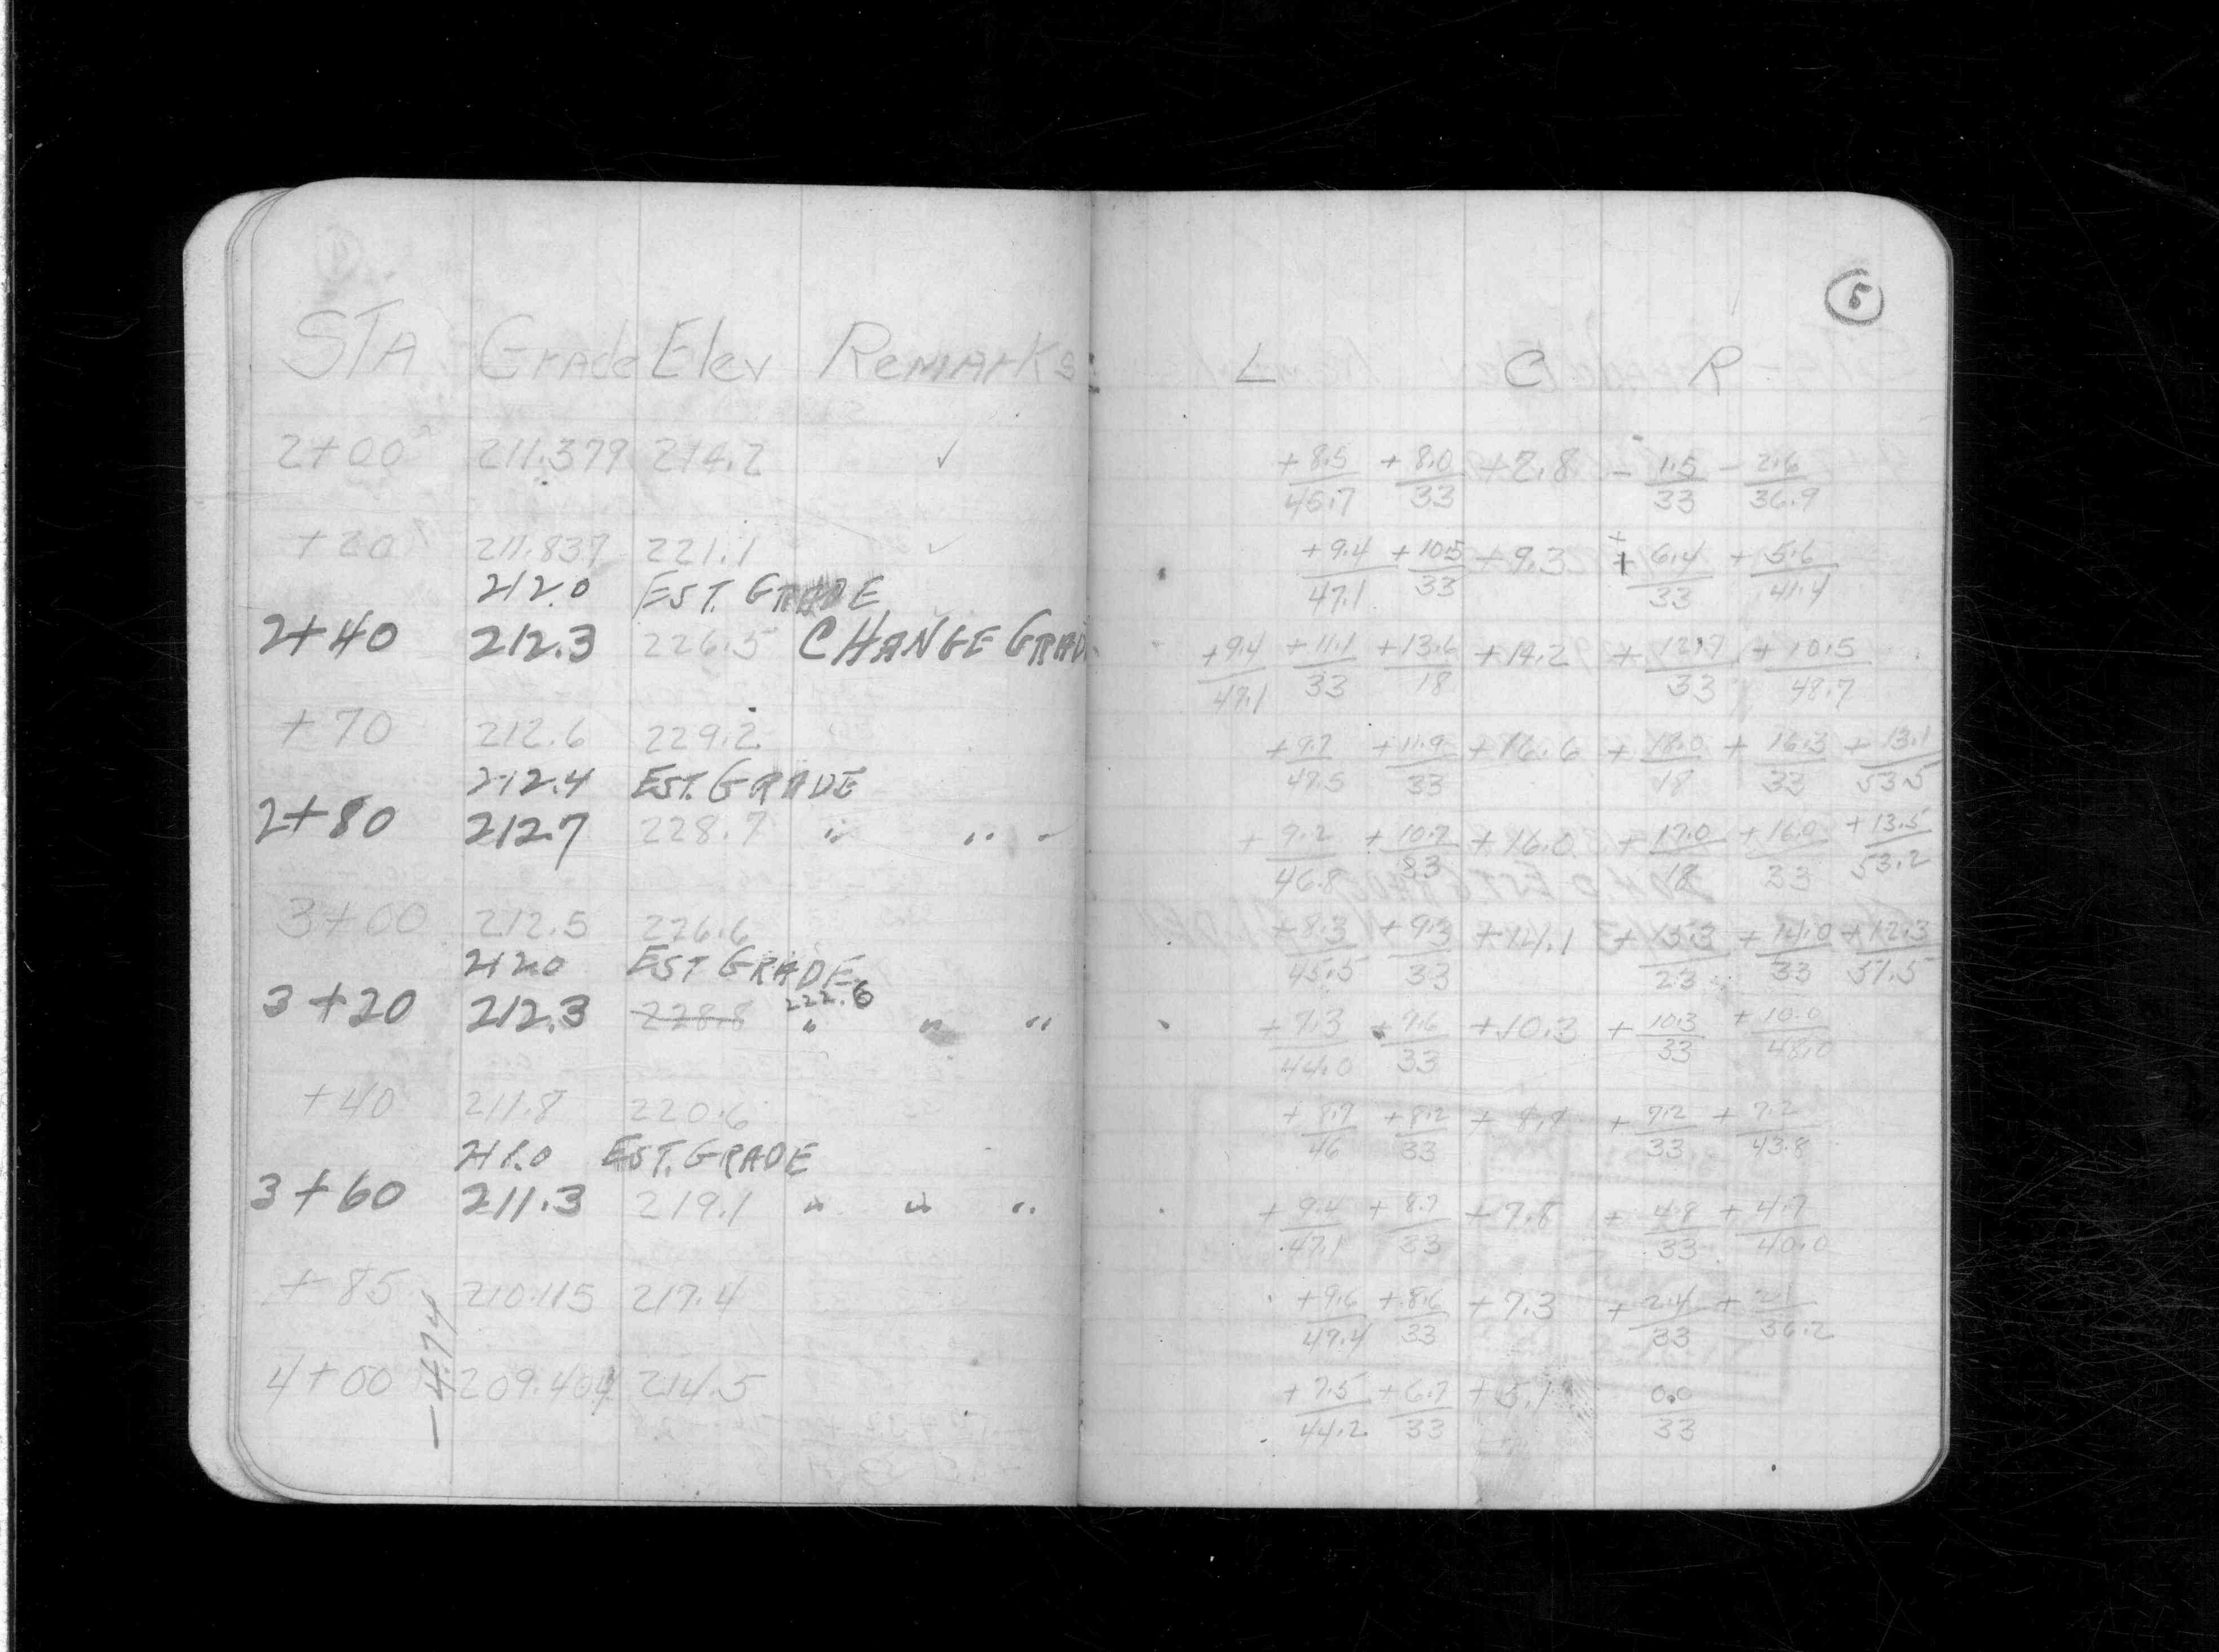 STA Grade Elev Remarks
2+00 211.379 214.2 ✓
+20 211.837 221.1 ✓
212.0 EST. GRADE
2+40 212.3 226.5 CHANGE GRAD
+70 212.6 229.2
212.4 EST. GRADE
2+80 212.7 228.7 " "
3+00 212.5 226.6
212.0 EST GRADE
222.6
3+20 212.3 228.8 " " "
+40 211.8 220.6
211.0 EST. GRADE
3+60 211.3 219.1 " " "
+85 210.115 217.4
4+00 209.404 214.5
-4.74
5
L C R
+8.5 +8.0 +2.8 -1.5 -2.6
45.7 33 33 36.9
+9.4 +10.5 +9.3 +6.4 +5.6
47.1 33 33 41.4
+9.4 +11.1 +13.6 +14.2 +12.7 +10.5
47.1 33 18 33 48.7
+9.7 +11.9 +16.6 +18.0 +16.3 +13.1
47.5 33 18 33 53.5
+9.2 +10.7 +16.0 +17.0 +16.0 +13.5
46.8 33 18 33 53.2
+8.3 +9.3 +14.1 +15.3 +14.0 +12.3
45.5 33 23 33 51.5
+7.3 +9.6 +10.3 +10.3 +10.0
44.0 33 33 48.0
+8.7 +8.2 + +7.2 +7.2
46 33 33 43.8
+9.4 +8.7 +7.8 +4.8 +4.7
47.1 33 33 40.0
+9.6 +8.6 +7.3 +2.4 +2.1
47.4 33 33 36.2
+7.5 +6.7 +5.1 0.0
44.2 33 33